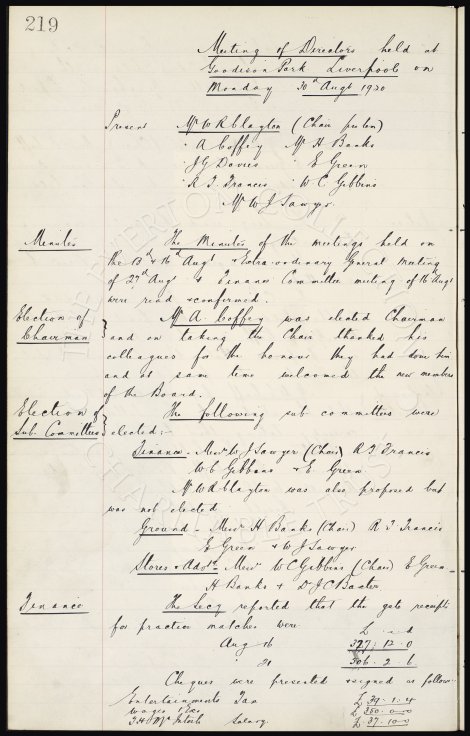 219
Meeting of Directors held at
Goodison Park Liverpool on
Monday 30th Augt 1920
Present Mr W R Clayton (Chair pro tem)
" A Coffey Mr H Banks
" J G Davies " E Green
" R T Francis " W C Gibbins
Mr W J Sawyer
Minutes The Minutes of the meetings held on
the 13th & 16th Augt & Extra-ordinary General Meeting
of 27th Augt & Finance Committee meeting of 16th Augt
were read & confirmed.
Election of Mr A. Coffey was elected Chairman
Chairman and on taking the Chair thanked his
colleagues for the honour they had done him
and at same time welcomed the new members
of the Board.
Election of The following sub committees were
Sub. Committees elected:-
Finance - Messrs W J Sawyer (Chair) R T Francis
W C Gibbins & E. Green.
Mr W R Clayton was also proposed but
was not elected
Ground - Messrs H Banks (Chair) R T Francis
E Green & W J Sawyer
Stores & Advtg Messrs W C Gibbins (Chair) E Green
H Banks & Dr J C Baxter
Finance The Secy reported that the gate receipts
for practice matches were
£ s d
Aug 16 327. 12. 0
" 21 306. 2. 6
Cheques were presented & signed as follows:
Entertainments Tax £ 39. 1. 4
Wages a/c £ 350. 0. 0
T. H. McIntosh Salary. £ 37. 10. 0